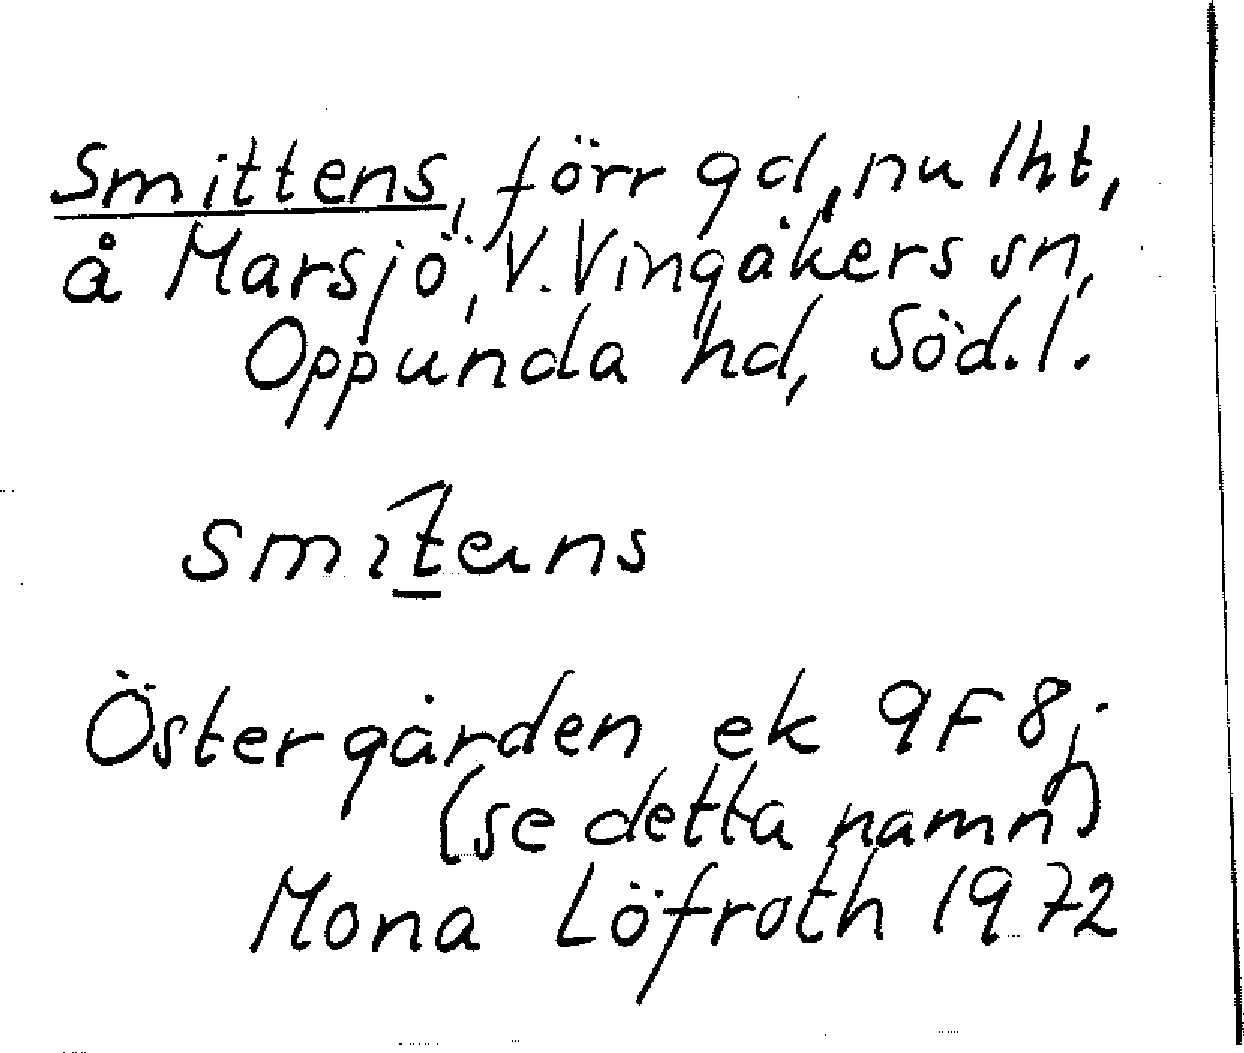 Smittens, förr gd, nu lht,
å Marsjö, V. Vingåkers sn,
Oppunda hd, Söd. l.
Östergården ek 9F 8j
(se detta namn)
Mona Löfroth 1972